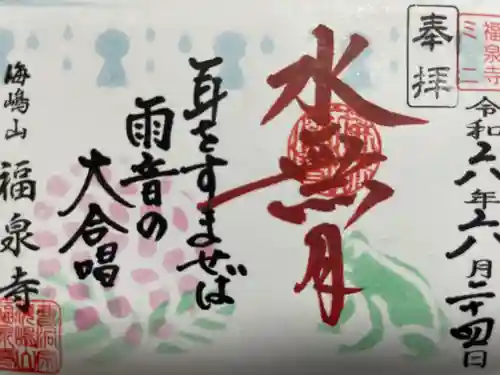 福泉寺
ミニ
奉拝
令和六年六月二十四日
水無月
耳をすませば
雨音の
大合唱
海嶋山 福泉寺